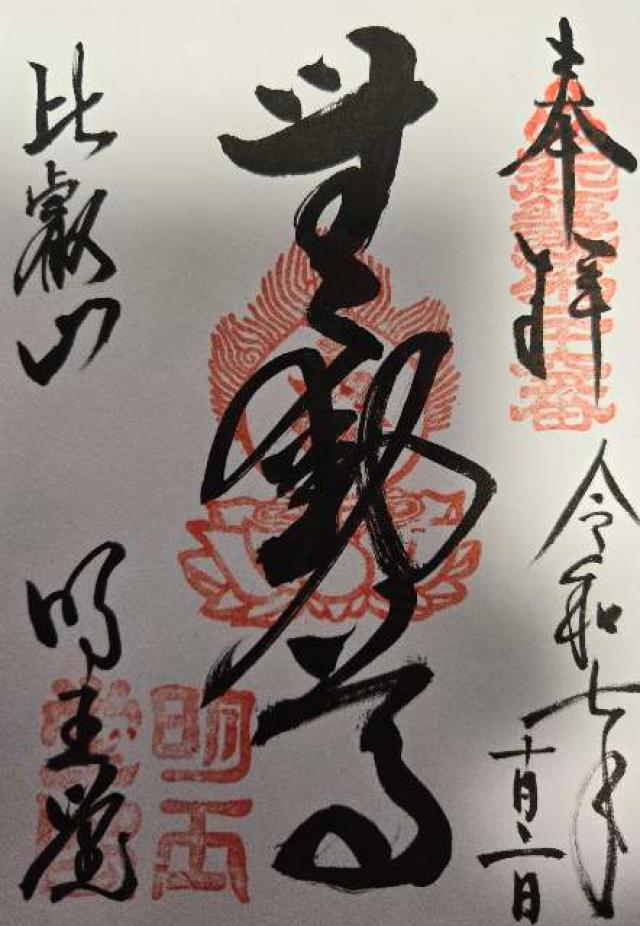 奉拝
令和七年
十月二日
無動尊
比叡山
明王堂
明王